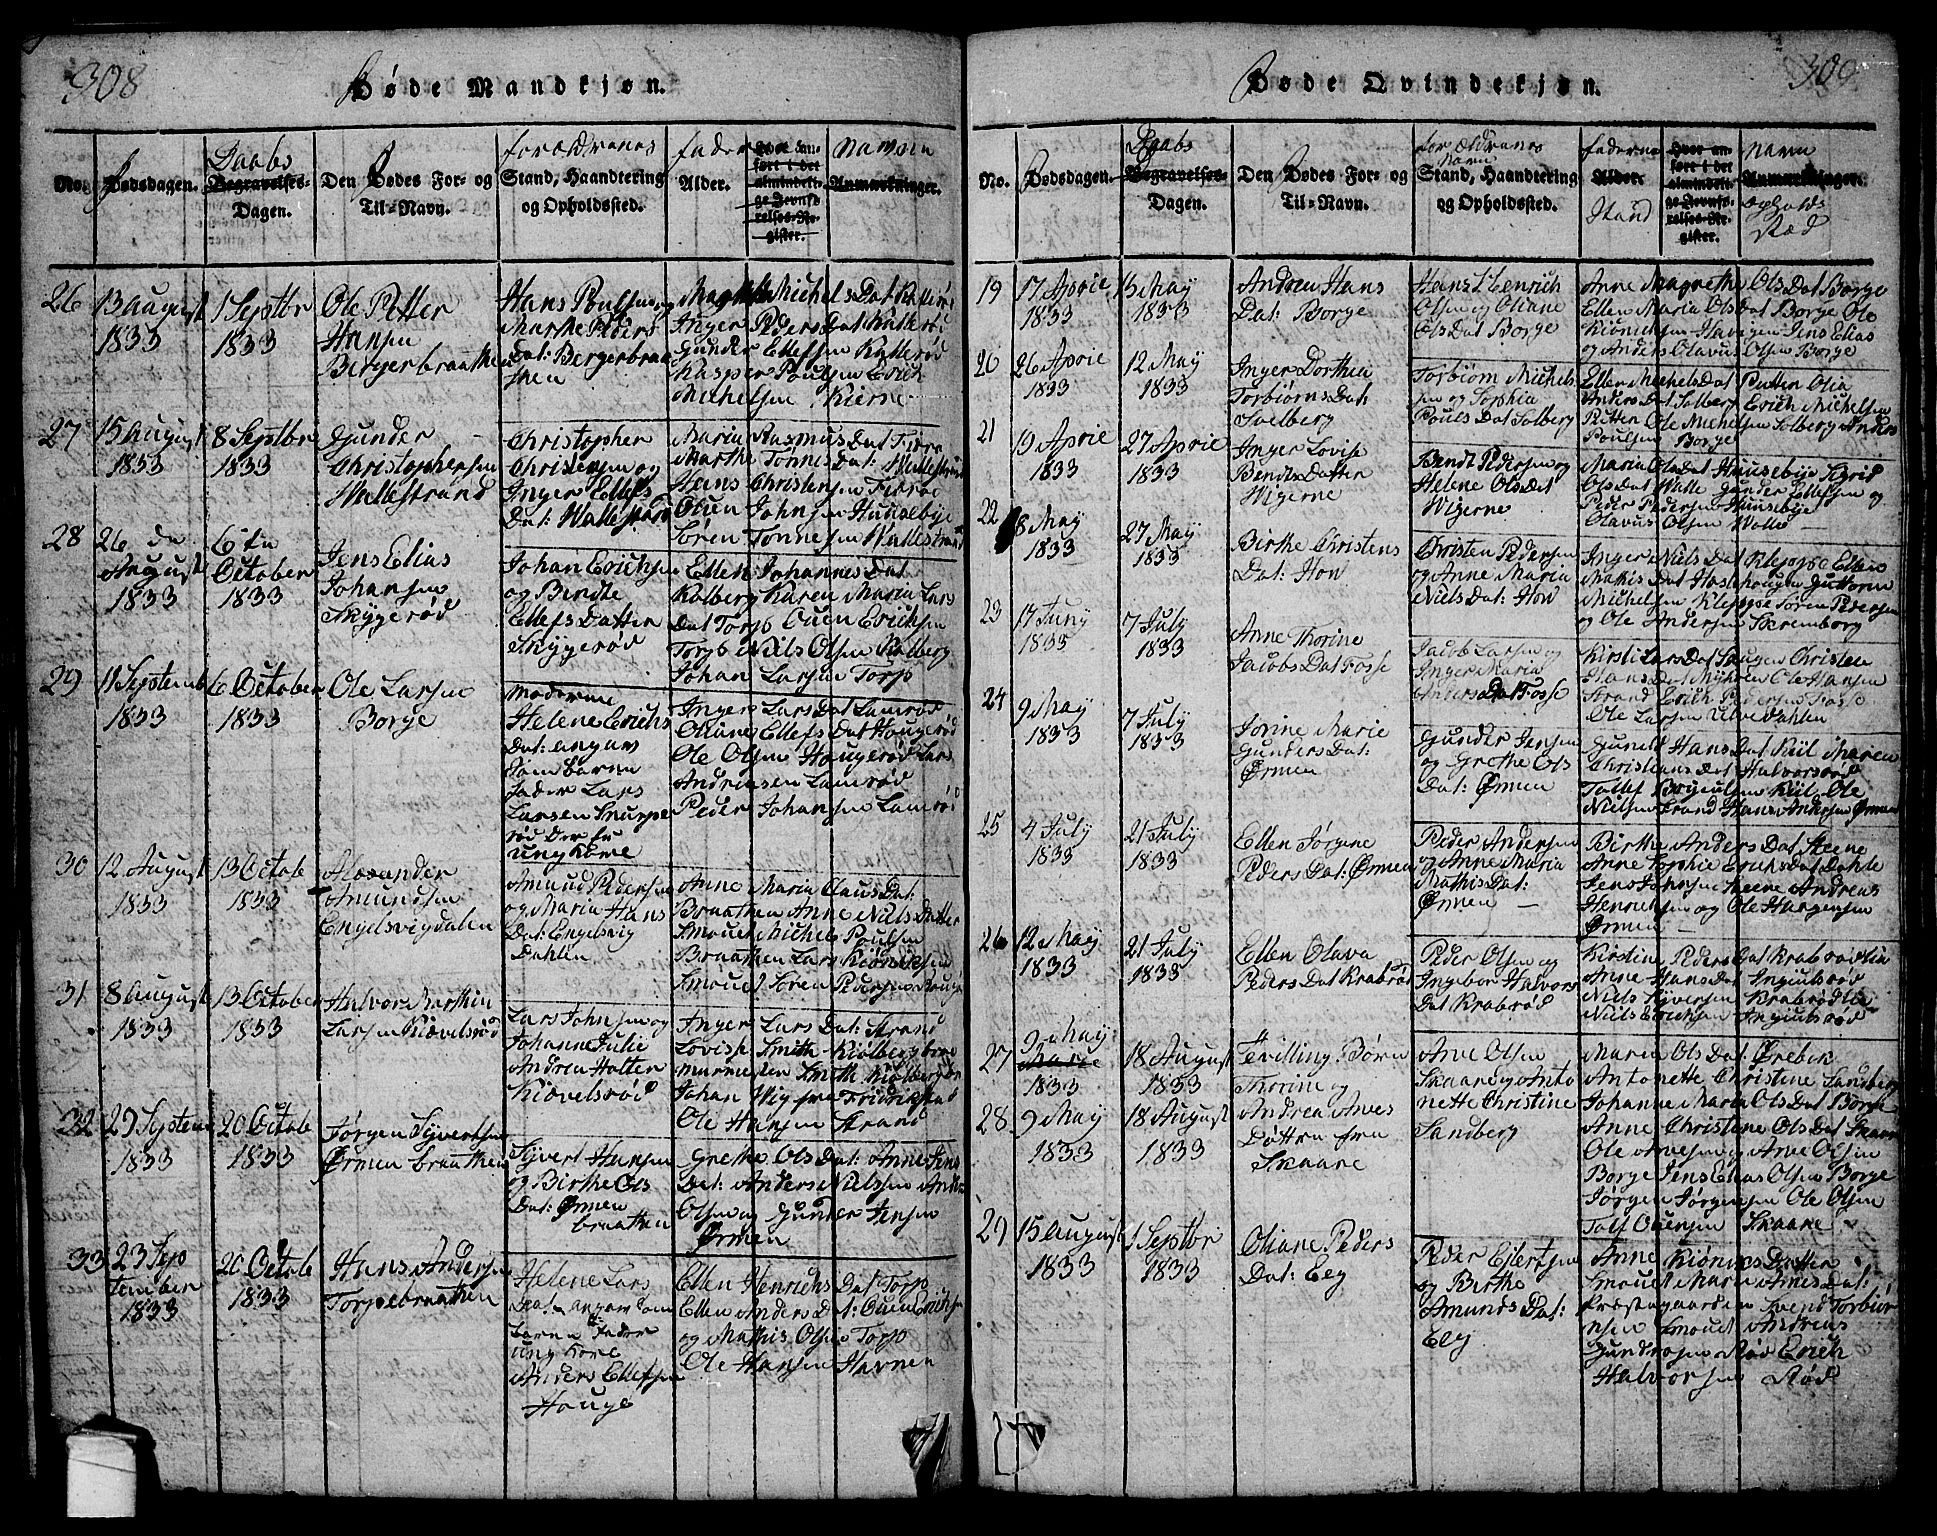 308
Døde Mandkjøn.
No.
Fødsdagen.
Daabs
Begravelses-
Dagen.
Den Dødes For- og
Til-Navn.
forældrenes
Stand, Haandtering
og Opholdssted.
fader
Alder.
Hvor an-
ført i det
almindeli-
ge Jevnfø-
relses-Re-
gister.
Anmærkninger.
26
13 August
1833
1 Septbr
1833
Ole Petter
Hansen
Bergerbraathen
Hans Poulsen og
Marthe Peders
Dat: Bergerbraa
then
Michels Dat Kallerød
Inger Peders Dat Kallerød
Gunder Ellefsen Kallerød
Kasper Poulsen Erich
Michelsen Kierne
27
15 August
1833
8 Septbr
1833
Gunder
Christophersen
Wallestrand
Christopher
Christensen og
Inger Ellefs
Dat: Wallestrand
Maria Rasmus Dat
Marthe Tønnes Dat: Wallestrand
Hans Christensen
Ouen Johnsen Huusebye
Søren Tønnesen Wallestrand
28
26 de
August
1833
6 te
October
1833
Jens Elias
Johansen
Skyggerød
Johan Erichsen
og Bendte
Ellefs Datter
Skyggerød
Ellen Johannes Dat
Kolberg Karen Maria Lars
Dat Torp Ouen Erichsen
Torp Niels Olsen Kolberg
Johan Larsen Torp
29
11 Septemb
1833
6 October
1833
Ole Larsen
Borge
Moderen
Helene Erichs
Dat: angav
som barne
fader Lars
Larsen Snuppe
rød Der er
ung Karl
Inger Lars Dat Lamrød
Oliane Ellefs Dat Hougerød
Ole Olsen Hougerød Lars
Andreasen Lamrød
Peder Johansen Lamrød
30
12 August
1833
13 Octob
1833
Alexander
Amundsen
Engelsvigdalen
Amund Pedersen
og Maria Hans
Dat: Engelsvig
Dahlen
Anne Maria Claus Dat:
Braathen Anne Niels Datter
Smouet Michel Poulsen
Braathen Lars Kiøniksen
Smouet Søren Pedersen
31
8 August
1833
13 October
1833
Halvor Marthin
Larsen Kiøvelsrød
Lars Johnsen og
Johanne Julie
Andrea Holter
Kiøvelsrød
Inger Lars Dat: Strand
Lovise Smith Kiølberg
Smith Kiølberg
Johan Wig fra Fridrikstad
Ole Hansen Strand
32
29 Septem
1833
20 Octob
1833
Jørgen Syvertsen
Ørmen braathen
Syvert Hansen
og Birthe Ols
Dat: Ørmen
braathen
Grethe Ols Dat: Anne Jens
Dat: Anders Nielsen Anders
Olsen og Gunder Jensen
Ørmen
33
23 Sep
tember
1833
20 Octob
1833
Hans Andersen
Torpebraathen
Helene Lars
Dat: angav som
barne fader
ung Karl
Anders Ellefsen
Houge
Ellen Henrichs Dat Torp
Ellen Anders Dat: Ouen Erichsen
og Mathis Olsen Torp
Ole Hansen Havnen
309
Døde Qvindekjøn.
No.
Fødsdagen.
Daabs
Begravelses-
Dagen.
Den Dødes For- og
Til-Navn.
forældrenes
Navn
Stand, Haandtering
og Opholdssted.
faderne
Alder.
Stand
Hvor an-
ført i det
almindeli-
ge Jevnfø-
relses-Re-
gister.
navn
Anmærkninger.
opholds
Stæd
19
17 Aprie
1833
15 May
1833
Andrea Hans
Dat: Borge
Hans Henrich
Olsen og Oliane
Ols Dat Borge
Anne Magrethe Ols Dat Borge
Ellen Maria Ols Dat Borge Ole
Kiønichsen Havigen Jens Elias
og Anders Olavus Olsen Borge
20
26 Aprie
1833
12 May
1833
Inger Dorthea
Torbiørns Dat:
Solberg
Torbiørn Michels
sen og Sophia
Pouls Dat Solberg
Ellen Michels Dat Putten Olia
Anders Dat Solberg Erich Michelsen
Putten Ole Michelsen Solberg Anders
Poulsen Borge
21
19 Aprie
1833
27 Aprie
1833
Inger Lovise
Bendts Datter
Wigerne
Bendt Pedersen og
Helene Ols Dat
Wigerne
Maria Ols Dat Huusebye Sigrid
Ols Dat Walle Gunder Ellefsen og
Peder Pedersen Huusebye
Olavus Olsen Walle
22
8 May
1833
27 May
1833
Birthe Christens
Dat: How
Christen Pedersen
og Anne Maria
Niels Dat: How
Inger Niels Dat Kleppe Ellen
Mathis Dat Hastehougen Guttorm
Michelsen Kleppe Søren Pedersen
og Ole Andersen Skremborg
23
17 Juny
1833
7 July
1833
Anne Thorine
Jacobs Dat Fosse
Jacob Larsen og
Inger Maria
Anders Dat Fosse
Kirsti Lars Dat Haugen Christen
Hans Dat Myhren Ole Hansen
Strand Erich Pedersen Fosse
Ole Larsen Ulvedahlen
24
9 May
1833
7 July
1833
Jorine Marie
Gunders Dat:
Ørmen
Gunder Jensen
og Grethe Ols
Dat: Ørmen
Gunild Hans Dat Kiil Maren
Christians Dat Halvorsrød
Tollef Børgeulsen Kiil Ole
Nielsen Strand Hans Andersen Ørmen
25
4 July
1833
21 July
1833
Ellen Jørgene
Peders Dat: Ørmen
Peder Andersen
og Anne Maria
Mathis Dat:
Ørmen
Birthe Anders Dat Steene
Anne Sophie Erichs Dat Dahle
Jens Johnsen Steene Andreas
Henrichsen og Ole Hargensen
Ørmen
26
12 May
1833
21 July
1833
Ellen Olava
Peders Dat Krabrød
Peder Olsen og
Ingebor Halvors
Dat Krabrød
Kirstine Peders Dat Krabrød
Anne Hans Dat Ingiulsrød
Niels Syversen Krabrød
Niels Erichsen Ingiulsrød
27
9 May
Marie
1833
18 August
1833
Tvilling Børn
Thorine og
Arve Olsen
Skaare og Anto
nette Christine
Sandberg
Maren Ols Dat: Ørebek
Antonette Christine Sandberg
Johanne Maria Ols Dat Borge
Anne Christine Ols Dat Skaare
28.
9 May
1833
18 August
1833
Andrea Arves
Døttre fra
Skaare
Ole Arvesen og Arve Olsen
Borge Jens Elias Olsen Borge
Jørgen Jørgensen Ole Olsen
Tolf Ouensen Skaare
29
15 August
1833
1 Septbr
1833
Oliane Peders
Dat: Eeg
Peder Eilertsen
og Birthe
Amunds Dat:
Eeg
Anne Kiønigs Datter
Smouet Maria Arnes Dat:
Præstegaarden Svend Torbiør
nsen Smouet Andreas
Gundrosen Rød Erich
Halvorsen Rød